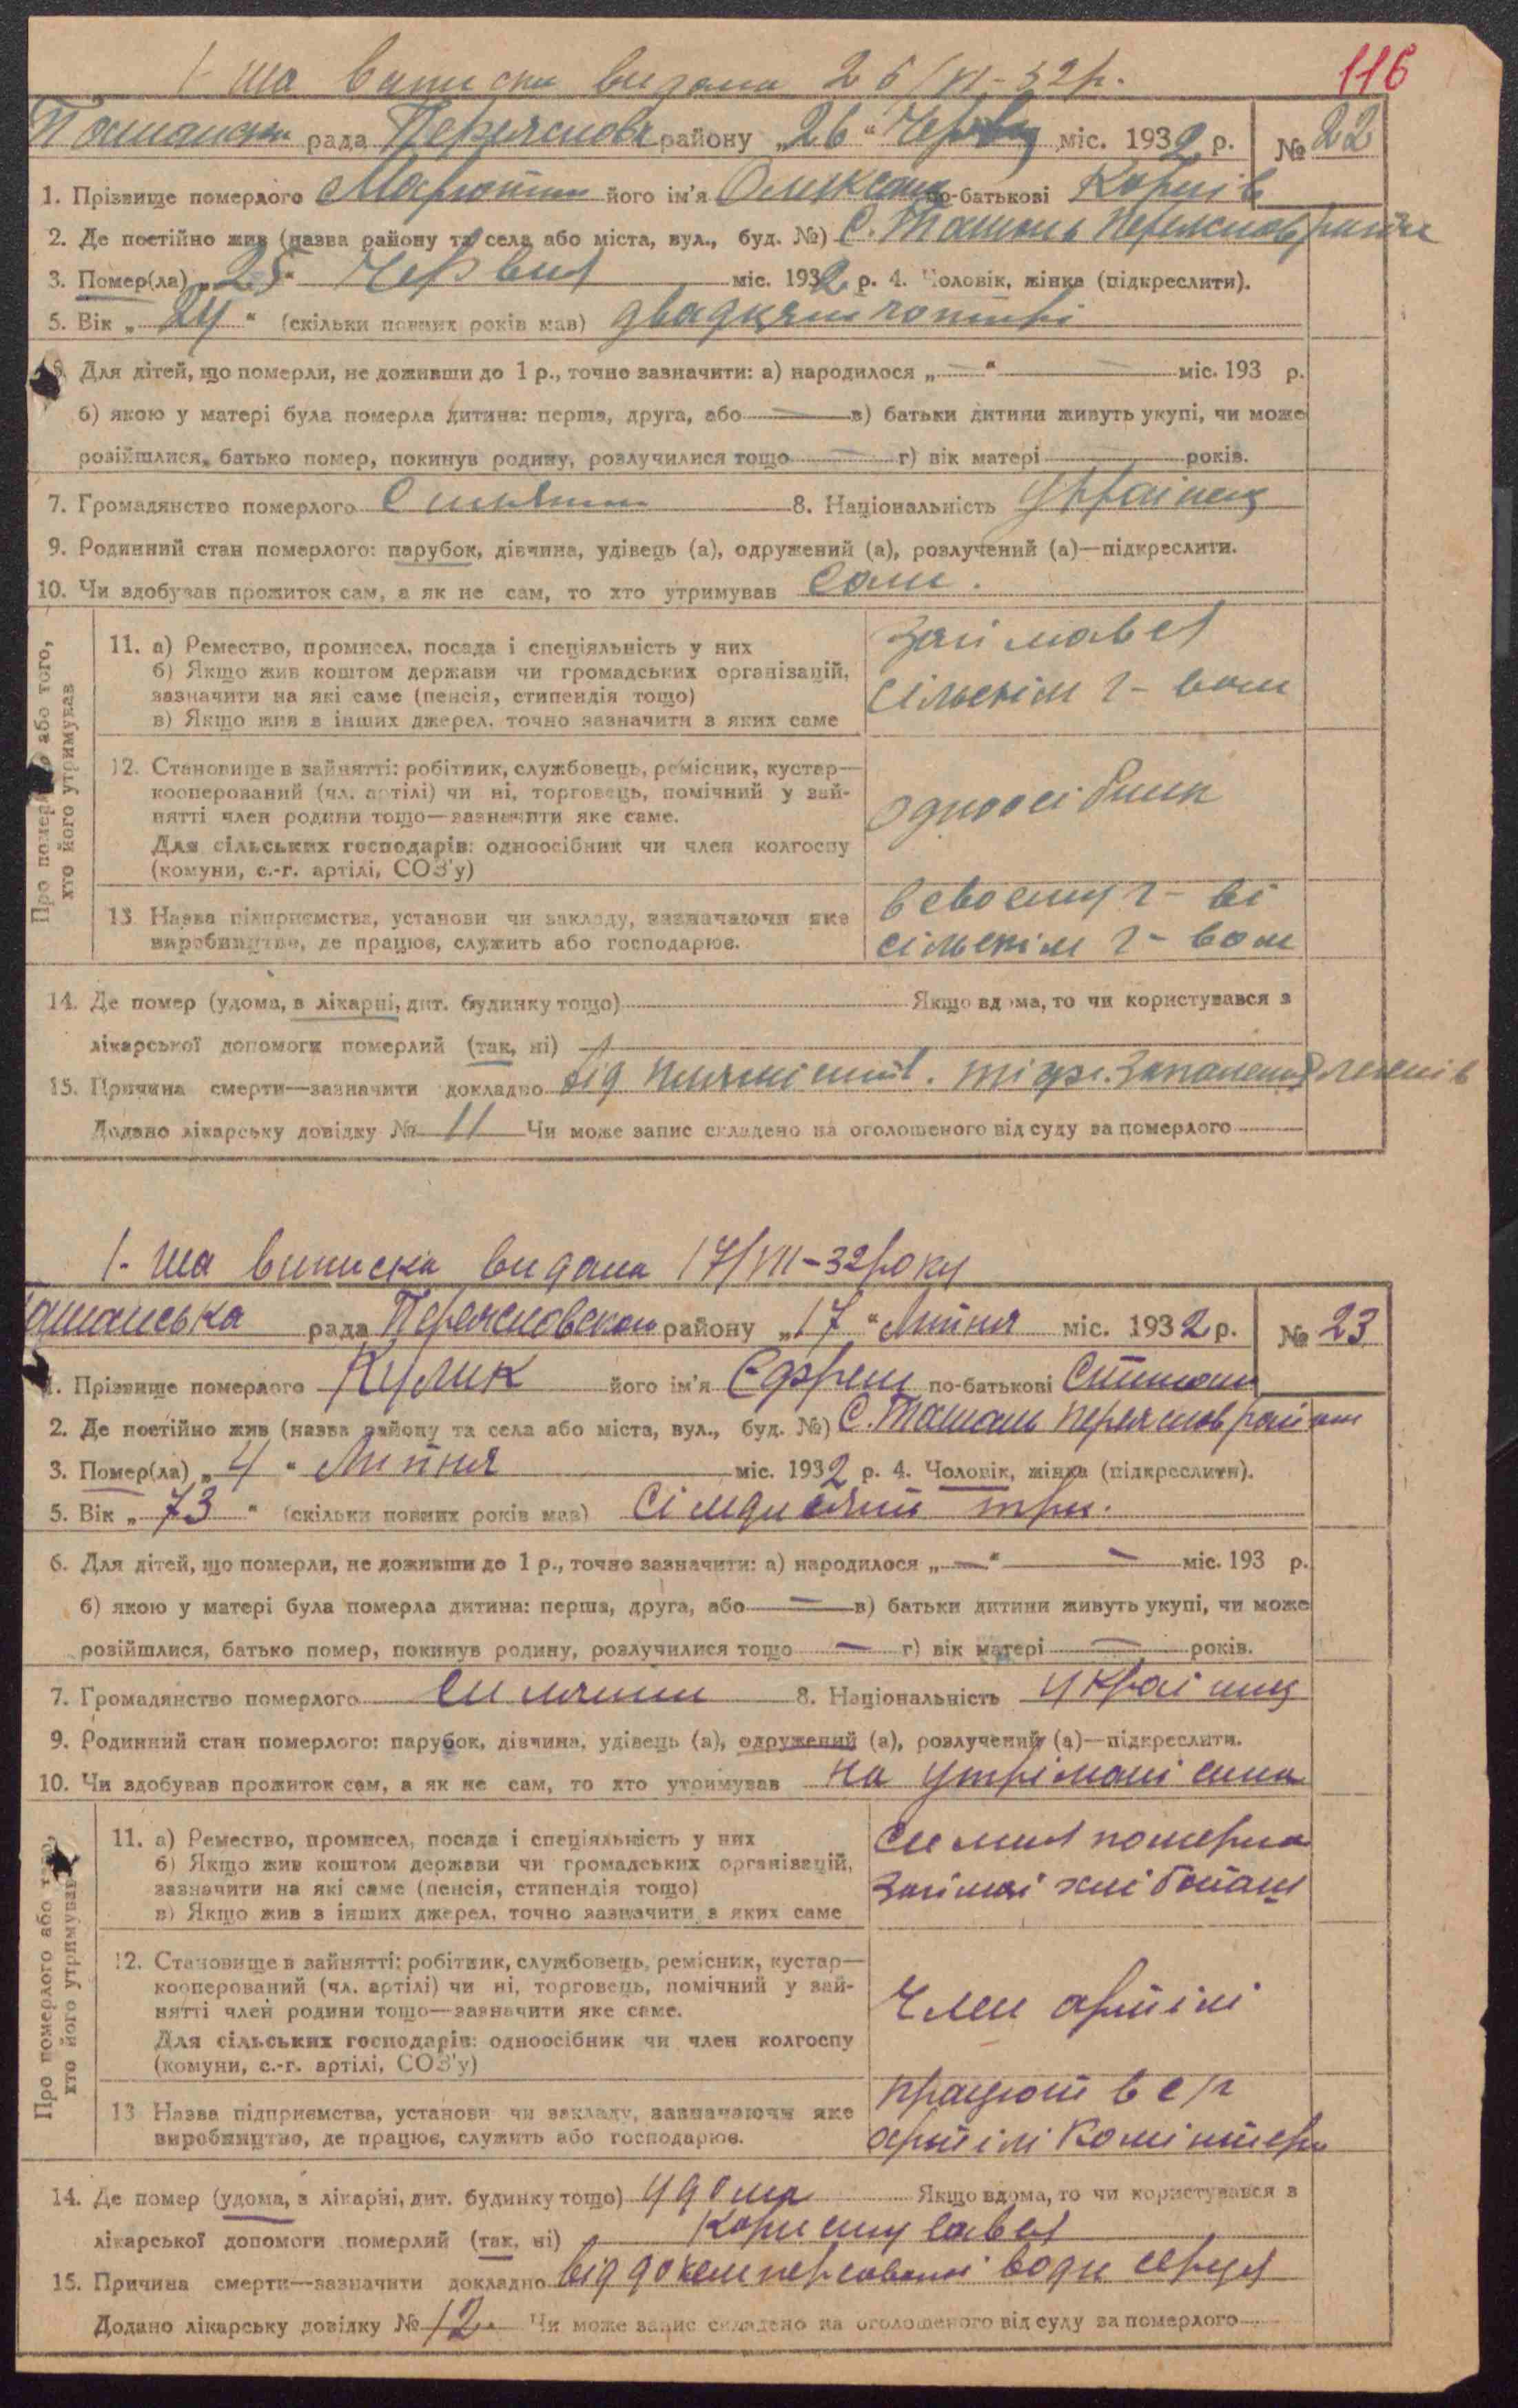 116
1-ша виписка видана 26/VI-32р.
Ташанська рада Переяслов району „26“ Червня міс. 1932 р. № 22
1. Прізвище померлого його ім'я Олександр по-батькові Корнів
2. Де постійно жив (назва району та села або міста, вул., буд. №) С. Ташань Переяслов району
3. Помер(ла) „25“ Червня міс. 1932 р. 4. Чоловік, жінка (підкреслити).
5. Вік „24“ (скільки повних років мав) двадцять чотирі
6. Для дітей, що померли, не доживши до 1 р., точно зазначити: а) народилося „—“ — міс. 193 р.
б) якою у матері була померла дитина: перша, друга, або — в) батьки дитини живуть укупі, чи може
розійшлися, батько помер, покинув родину, розлучилися тощо — г) вік матері — років.
7. Громадянство померлого 8. Національність Українец
9. Родинний стан померлого: парубок, дівчина, удівець (а), одружений (а), розлучений (а)—підкреслити.
10. Чи здобував прожиток сам, а як не сам, то хто утримував Сам.
Про померлого або того, хто його утримував
11. а) Ремество, промисел, посада і спеціяльність у них
б) Якщо жив коштом держави чи громадських організацій,
зазначити на які саме (пенсія, стипендія тощо)
в) Якщо жив з інших джерел, точно зазначити з яких саме
займався
сільскім г-вом
12. Становище в зайнятті: робітник, службовець, ремісник, кустар—
кооперований (чл. артілі) чи ні, торговець, помічний у зай-
нятті член родини тощо—зазначити яке саме.
Для сільських господарів: одноосібник чи член колгоспу
(комуни, с.-г. артілі, СОЗ'у)
одноосібник
13. Назва підприємства, установи чи закладу, зазначаючи яке
виробництво, де працює, служить або господарює.
в своему г-ві
сільскім г-вом
14. Де помер (удома, в лікарні, дит. будинку тощо) Якщо вдома, то чи користувався з
лікарської допомоги померлий (так, ні)
15. Причина смерти—зазначити докладно від
Додано лікарську довідку № 11 Чи може запис складено на оголошеного від суду за померлого
1-ша виписка видана 17/VII-32 року
Ташанська рада Переясловском району „17“ Липня міс. 1932 р. № 23
1. Прізвище померлого Кулик його ім'я Єфрем по-батькові
2. Де постійно жив (назва району та села або міста, вул., буд. №) С. Ташань Переяслов району
3. Помер(ла) „4“ Липня міс. 1932 р. 4. Чоловік, жінка (підкреслити).
5. Вік „73“ (скільки повних років мав) сімдисяти три.
6. Для дітей, що померли, не доживши до 1 р., точно зазначити: а) народилося „—“ — міс. 193 р.
б) якою у матері була померла дитина: перша, друга, або — в) батьки дитини живуть укупі, чи може
розійшлися, батько помер, покинув родину, розлучилися тощо — г) вік матері — років.
7. Громадянство померлого 8. Національність українец
9. Родинний стан померлого: парубок, дівчина, удівець (а), одружений (а), розлучений (а)—підкреслити.
10. Чи здобував прожиток сам, а як не сам, то хто утримував на утрімані сина
Про померлого або того, хто його утримував
11. а) Ремество, промисел, посада і спеціяльність у них
б) Якщо жив коштом держави чи громадських організацій,
зазначити на які саме (пенсія, стипендія тощо)
в) Якщо жив з інших джерел, точно зазначити з яких саме
12. Становище в зайнятті: робітник, службовець, ремісник, кустар—
кооперований (чл. артілі) чи ні, торговець, помічний у зай-
нятті член родини тощо—зазначити яке саме.
Для сільських господарів: одноосібник чи член колгоспу
(комуни, с.-г. артілі, СОЗ'у)
Член артілі
13. Назва підприємства, установи чи закладу, зазначаючи яке
виробництво, де працює, служить або господарює.
працюют в с/г
артілі Комінтерн
14. Де помер (удома, в лікарні, дит. будинку тощо) удома Якщо вдома, то чи користувався з
лікарської допомоги померлий (так, ні) користувався
15. Причина смерти—зазначити докладно від вади серця
Додано лікарську довідку № 12. Чи може запис складено на оголошеного від суду за померлого